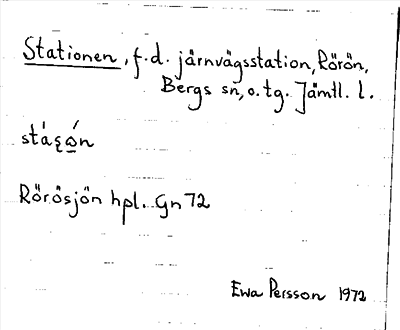 Stationen, f.d. järnvägsstation, Rörön,
Bergs sn, o. tg. Jämtl. l.
Rörösjön hpl. Gn 72
Ewa Persson 1972